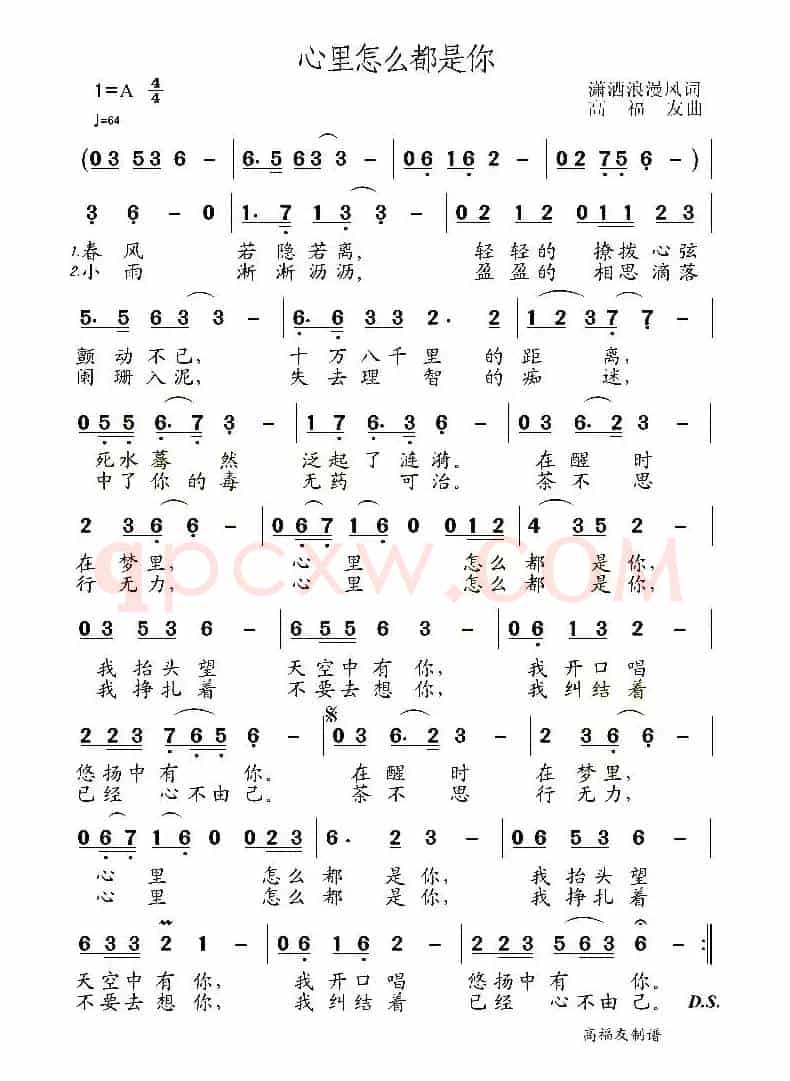 心里怎么都是你
1=A 4/4
♩=64
潇洒浪漫风词
高福友曲
(0 3 5 3 6 - | 6. 5 6 3 3 - | 0 6 1 6 2 - | 0 2 7 5 6 - )
3 6 - 0 | 1. 7 1 3 3 - | 0 2 1 2 0 1 1 2 3
1.春风 若隐若离, 轻轻的 撩拨心弦
2.小雨 淅淅沥沥, 盈盈的 相思滴落
5. 5 6 3 3 - | 6. 6 3 3 2. 2 | 1 2 3 7 7 -
颤动不已, 十万八千里 的距离,
阑珊入泥, 失去理智的痴迷,
0 5 5 6. 7 3 - | 1 7 6. 3 6 - | 0 3 6. 2 3 -
死水蓦然 泛起了涟漪。 在醒时
中了你的毒 无药可治。 茶不思
2 3 6 6 - | 0 6 7 1 6 0 0 1 2 | 4 3 5 2 -
在梦里, 心里 怎么都是你,
行无力, 心里 怎么都是你,
qpcxw.COM
0 3 5 3 6 - | 6 5 5 6 3 - | 0 6 1 3 2 -
我抬头望 天空中有你, 我开口唱
我挣扎着 不要去想你, 我纠结着
2 2 3 7 6 5 6 - | 0 3 6. 2 3 - | 2 3 6 6 -
悠扬中有你。 在醒时 在梦里,
已经心不由己。 茶不思 行无力,
0 6 7 1 6 0 0 2 3 | 6. 2 3 - | 0 6 5 3 6 -
心里 怎么都是你, 我抬头望
心里 怎么都是你, 我挣扎着
6 3 3 2 1 - | 0 6 1 6 2 - | 2 2 3 5 6 3 6 - :||
天空中有你, 我开口唱 悠扬中有你。
不要去想你, 我纠结着 已经心不由己。 D.S.
高福友制谱